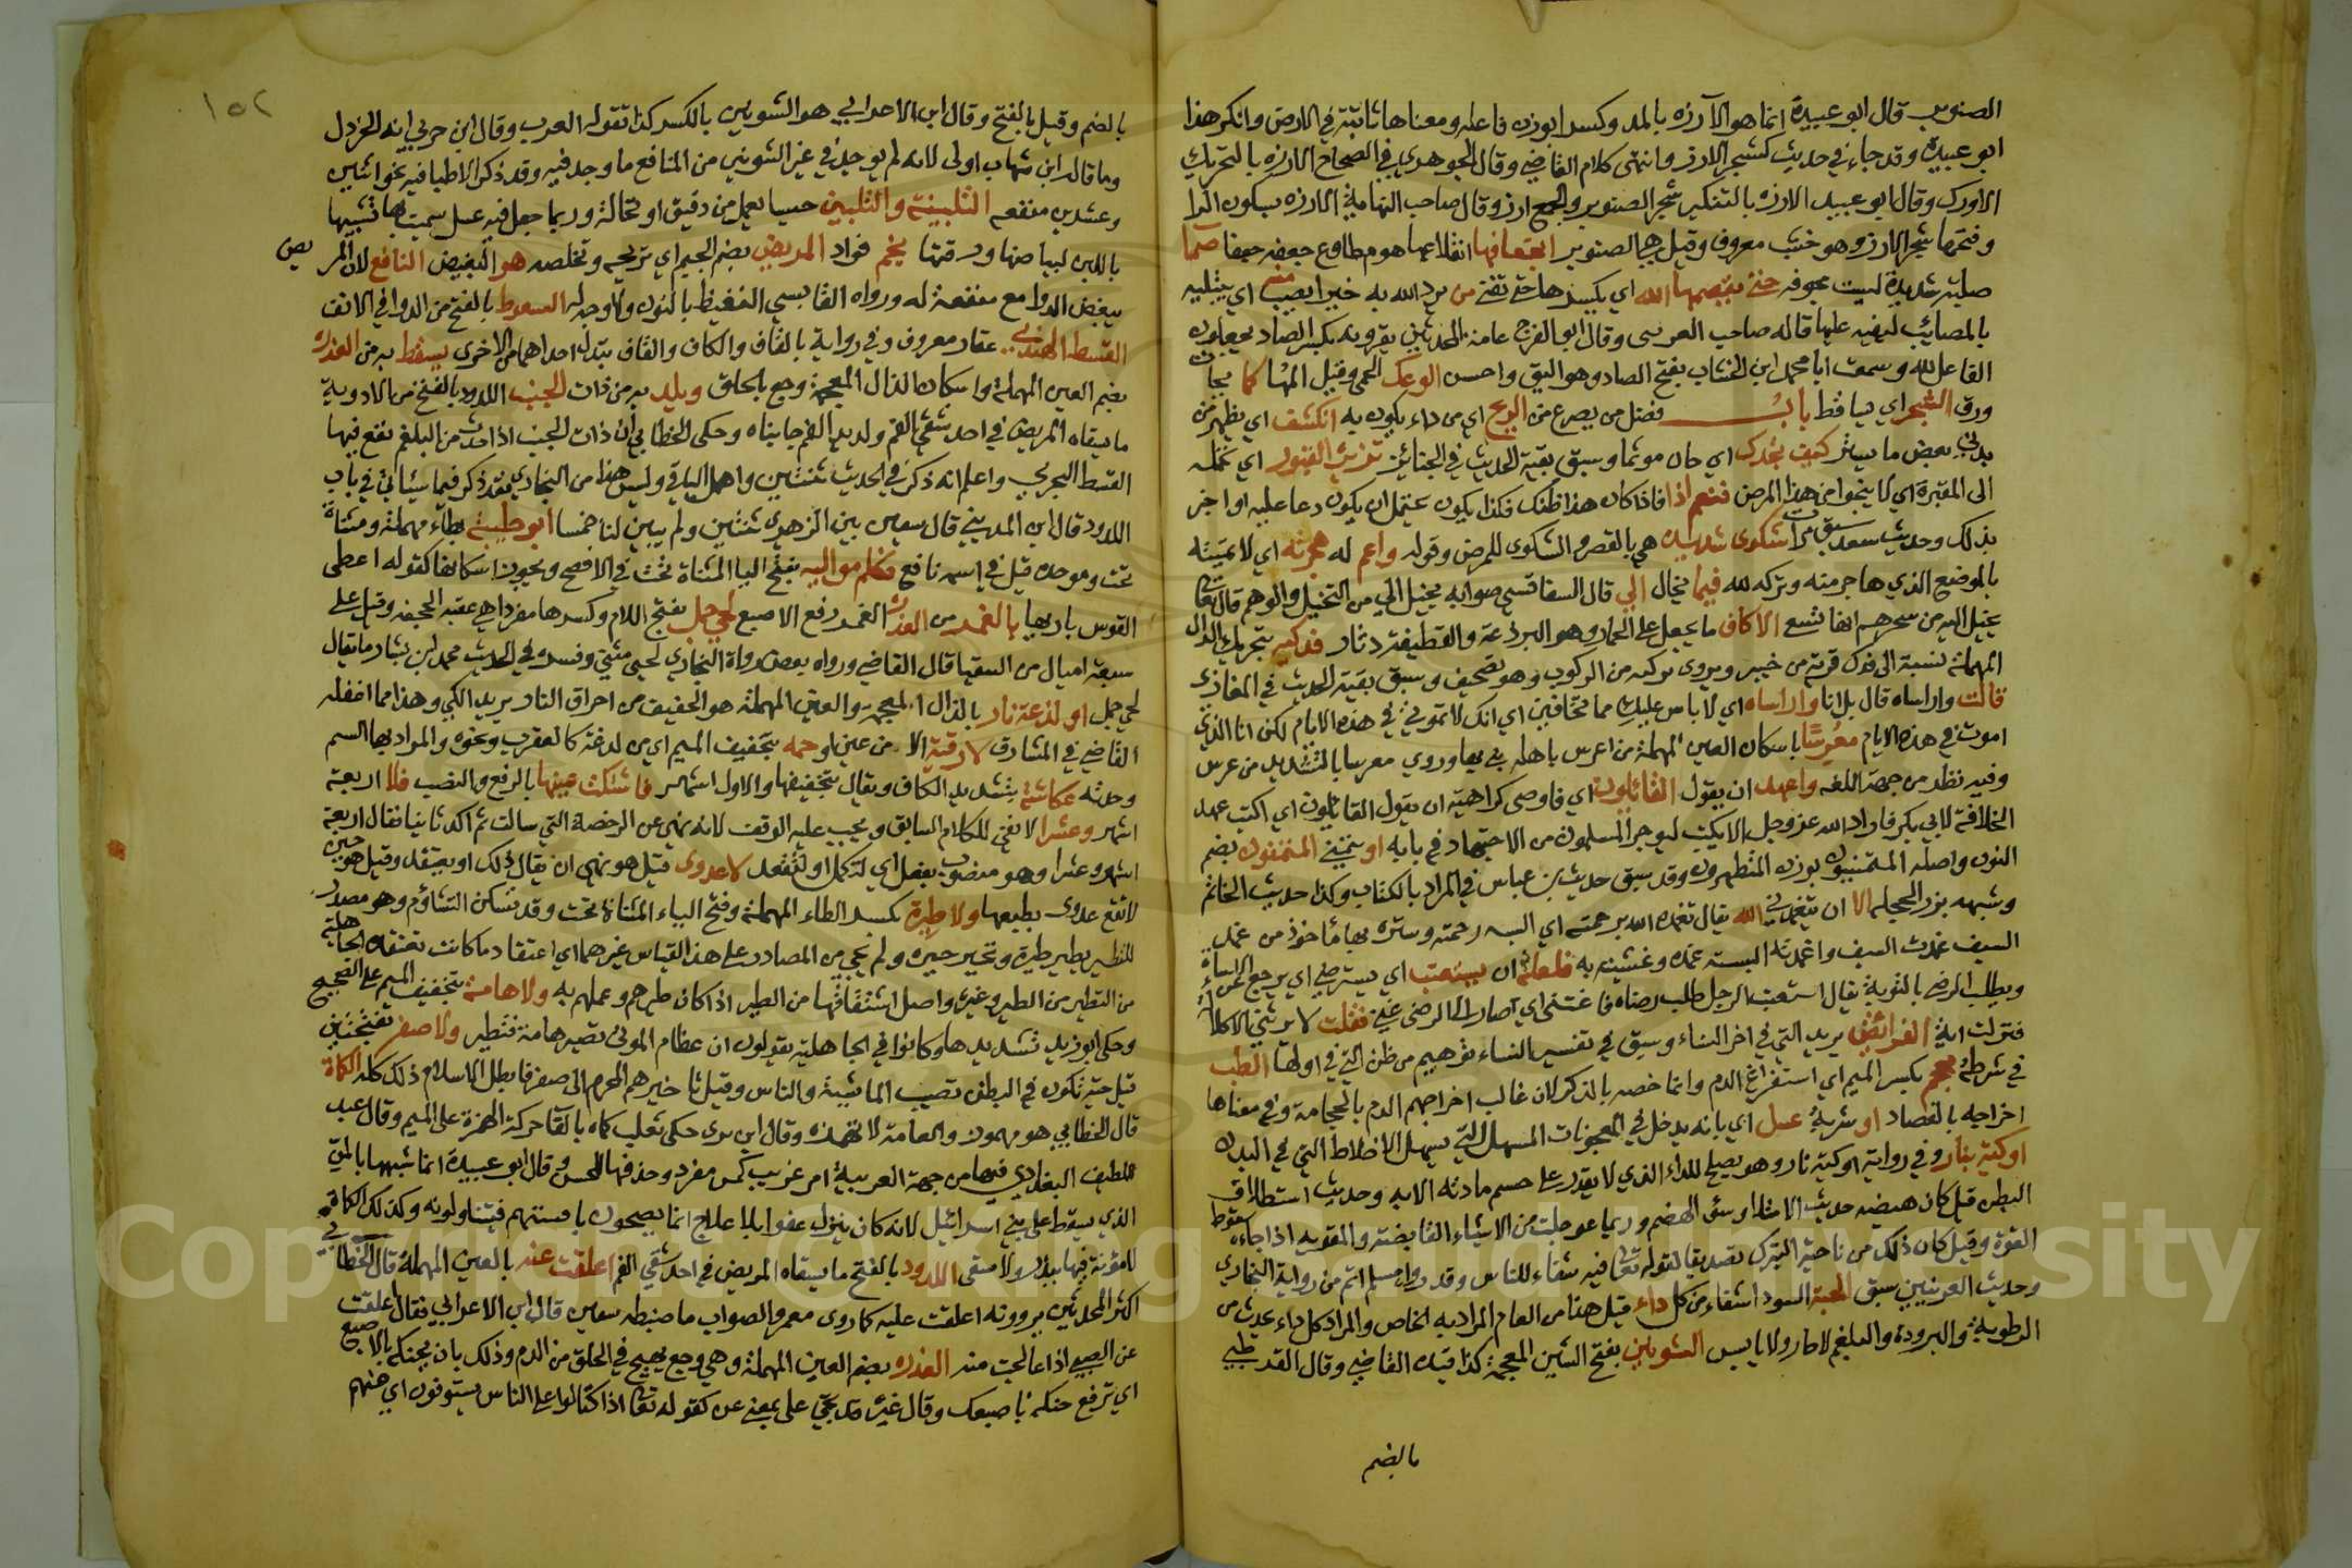 الصنوبر قال ابو عبيدة انما هو الآرزه بالمد وكسر ابوزن فاعله ومعناها ثابتة في الارض وانكر هذا
ابو عبيدة وقد جاء في حديث كشجر الارز وانتهى كلام القاضي وقال الجوهري في الصحاح الارزه بالتحريك
وقال ابو عبيد الارزه بالتنكير شجر الصنوبر والجمع ارز وقال صاحب النهاية الارزه بسكون الرا
وفتحها شجر الارز وهو خشب معروف وقيل هي الصنوبر انجعافها انقلاعها هو مطاوع جعفه جعفا صما
صلبة شديدة ليست مجوفه حتى يقصمها الله اي يكسرها من يرد الله به خيرا يصب منه اي يبتليه
بالمصائب ليثيبه عليها قاله صاحب الغريبين وقال ابو الفرج عامة المحدثين يقرونه بكسر الصاد يجعلون
الفاعل لله وسمعت ابا محمد ابن الخشاب بفتح الصاد وهو اليق واحسن الوعك الحمى وقيل المها كما تحات
ورق الشجر اي تساقط باب فضل من يصرع من الريح اي من داء يكون به انكشف اي يظهر من
بدني بعض ما يستر كيف تجدك اي حال موتها وسبق بقية الحديث في الجنائز تزيره القبور اي تحمله
الى المقبرة اي لا ينجوا من هذا المرض فنعم اذا فاذا كان هذا ظنك فكذا يكون يحتمل ان يكون دعا عليه او اخبر
بذلك وحديث سعد سبق مرات شكوى شديده هي بالقصر والشكوى للمرض وقوله واتم له هجرته اي لا تميته
بالموضع الذي هاجر منه وتركه لله فيما يخال الي قال السفاقسي صوابه يخيل الي من التخيل والوهم قال تعالى
يخيل اليه من سحرهم انها تسعى الاكاف ما يجعل على الحمار وهو البرذعة والقطيفة دثار فدكيه بتحريك الدال
المهملة نسبة الى فدك قرية من خيبر ويروى بركبه من الركوب وهو تصحيف وسبق بقية الحديث في المغازي
قالت واراساه قال بل انا واراساه اي لا باس عليك مما تخافين اي انك لا تموتي في هذه الايام لكن انا الذي
اموت في هذه الايام معرسا باسكان العين المهملة من اعرس باهله بني بها وروي معرسا بالتشديد من عرس
وفيه نظر من جهة اللغه واعهد ان يقول القائلون اي فاوصى كراهية ان يقول القائلون اي اكتب عهد
الخلافة لابي بكر فاراد الله عز وجل الا يكتب ليوجر المسلمون من الاجتهاد في بابه او يتمنى المتمنون بضم
النون واصله المتمنيون بوزن المتطهرون وقد سبق حديث بن عباس في المراد بالكتاب وكذا حديث الخاتم
وشبهه بزر الحجله الا ان يتغمدني الله يقال تغمده الله برحمته اي البسه رحمته وستره بها ماخوذ من غمد
السيف غمدت السيف واغمدته البسته غمده وغشيته به فلعله ان يستعتب اي يسترضي اي يرجع عن الاساة
ويطلب الرضى بالتوبة يقال استعتبت الرجل طلب رضاه فاعتبني اي صار الى الرضى عني فقلت لا يرثني الا كلالة
فنزلت اية الفرائض يريد التي في اخر النساء وسبق في تفسير النساء توهيم من ظن التي في اولها الطب
في شرطة محجم بكسر الميم اي استفراغ الدم وانما خصه بالذكر لان غالب اخراجهم الدم بالحجامة وفي معناها
اخراجه بالفصاد او شربة عسل اي بانه يدخل في المعجونات المسهل التي يسهل الاخلاط التي في البدن
اوكية بنار وفي رواية اوكية نار وهو يصلح للداء الذي لا يقدر على حسم مادته الا به وحديث استطلاق
البطن قيل كان هيضه حديث الامتلا او سوء الهضم وربما عوجلت من الاشياء القابضة والمقويه اذا جاءه سقوط
القوة وقيل كان ذلك من ناحية التبرك تصديقا لقوله تعالى فيه شفاء للناس وقد رواه مسلم اتم من رواية البخاري
وحديث العرنيين سبق الحبة السودا شفاء من كل داء قيل هذا من العام المراد به الخاص والمراد كل داء يحدث من
الرطوبة والبرودة والبلغم لا حار ولا يابس الشونيز بفتح الشين المعجمة كذا قيده القاضي وقال القرطبي
بالضم
١٥٢
بالضم وقيل بالفتح وقال ابن الاعرابي هو الشونيز بالكسر كذا تقوله العرب وقال ابن حربي انه الخردل
وما قاله ابن شهاب اولى لانه لم يوجد في غير الشونيز من المنافع ما وجد فيه وقد ذكر الاطبا فيه نحو اثنين
وعشرين منفعه التلبينة والتلبين حسا يعمل من دقيق او نخالة وربما جعل فيه عسل سميت بها تشبيها
باللبن لبياضها ورقتها يجم فواد المريض بضم الجيم اي تريحه وتخلصه هو البغيض النافع لان المريض
يبغض الدوا مع منفعة له ورواه القابسي النغيظ بالنون ولا وجه له السعوط بالفتح من الدوا في الانف
القسط الهندي عقار معروف وفي رواية بالقاف والكاف والقاف تبدل احداهما من الاخرى يسعط به من العذره
بضم العين المهملة واسكان الذال المعجمة وجع بالحلق ويلد به من ذات الجنب اللدود بالفتح من الادوية
ما يسقاه المريض في احد شقي الفم ولديد الفم جانباه وحكى الخطابي ان ذات الجنب اذا حدثت من البلغم نفع فيها
القسط البحري واعلم انه ذكر في الحديث ثنتين واهمل الباقي وليس هذا من البخاري فقد ذكر فيما سياتي في باب
اللدود قال ابن المديني قال سفين بين الزهري ثنتين ولم يبين لنا خمسا ابو طيبة بطاء مهملة ومثناة
تحت وموحده قيل في اسمه نافع فكلم مواليه بفتح اليا المثناة تحت في الافصح ويجوز اسكانها كقوله اعطى
القوس باريها بالغمز من العذرة الغمز رفع الاصبع لحي جمل بفتح اللام وكسرها مفردا هي عقبة الجحفه وقيل على
سبعة اميال من السقيا قال القاضي ورواه بعض رواة البخاري لحيي مثني وفسره في الحديث محمد بن بشار ما يقال
لحي جمل او لذعة نار بالذال المعجمه والعين المهملة هو الخفيف من احراق النار يريد الكي وهذا مما اغفله
القاضي في المشارق لا رقية الا من عين او حمه بتخفيف الميم اي من لدغة كالعقرب ونحوه والمراد بها السم
وحدثه عكاشة بتشديد الكاف ويقال بتخفيفها والاول اشهر فاشتكت عينها بالرفع والنصب فلا اربعة
اشهر وعشرا لا نفي للكلام السابق ويجب عليه الوقف لانه نهي عن الرخصة التي سالت ثم اكد ثانيا فقال اربعة
اشهر وعشرا وهو منصوب بفعل اي لتكمل او لتقعد لا عدوى قيل هو نهي ان يقال ذلك او يعتقد وقيل هو خبر
لا تقع عدوى بطبعها ولا طيرة بكسر الطاء المهملة وفتح الياء المثناة تحت وقد تسكن التشاؤم وهو مصدر
للتطير يطير طيرة وتخير خيره ولم يجي من المصادر على هذا القياس غيرهما اي اعتقاد ما كانت تعتقده الجاهلية
من التطير من الطير وغيره واصل اشتقاقها من الطير اذا كان طيرهم وعملهم به ولا هامة بتخفيف الميم على الصحيح
وحكى ابو زيد تشديدها وكانوا في الجاهلية يقولون ان عظام الموتى تصير هامة فتطير ولا صفر بفتحتين
قيل حية تكون في البطن تصيب الماشية والناس وقيل تاخيرهم المحرم الى صفر فابطل الاسلام ذلك كله الكماة
قال الخطابي هو مهموز والعامة لا تهمزه وقال ابن بري حكى ثعلب كماه بالقا حركة الهمزة على الميم وقال عبد
اللطيف البغدادي فيها من جهة العربية امر غريب كمء مفرد وحذفها للحسن وقال ابو عبيدة انما شبهها بالمن
الذي يسقط على بني اسرائيل لانه كان ينزل عفوا بلا علاج انما يصبحون بافنيتهم فيتناولونه وكذلك الكماة
لا مؤنة فيها ببذر ولا سقي اللدود بالفتح ما يسقاه المريض في احد شقي الفم اعلقت عنه بالعين المهملة قال الخطابي
اكثر المحدثين يروونه اعلقت عليه كما روى معمر والصواب ما ضبطه سفين قال ابن الاعرابي فقال اعلقت
عن الصبي اذا عالجت منه العذره بضم العين المهملة وهي وجع يهيج في الحلق من الدم وذلك بان يحنكه بالاصبع
اي ترفع حنكه باصبعك وقال غيره قد تجي على بمعنى عن كقوله تعالى اذا اكتالوا على الناس يستوفون اي عنهم
Copyright © King Saud University